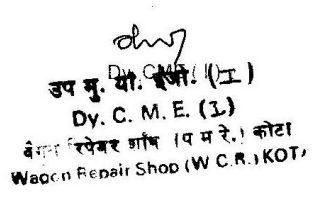 Dy. CME (I)
उप मु. यां. इंजी. (I)
Dy. C. M. E. (I)
वैगन रिपेयर शॉप (प म रे.) कोटा
Wagon Repair Shop (W C.R.) KOTA